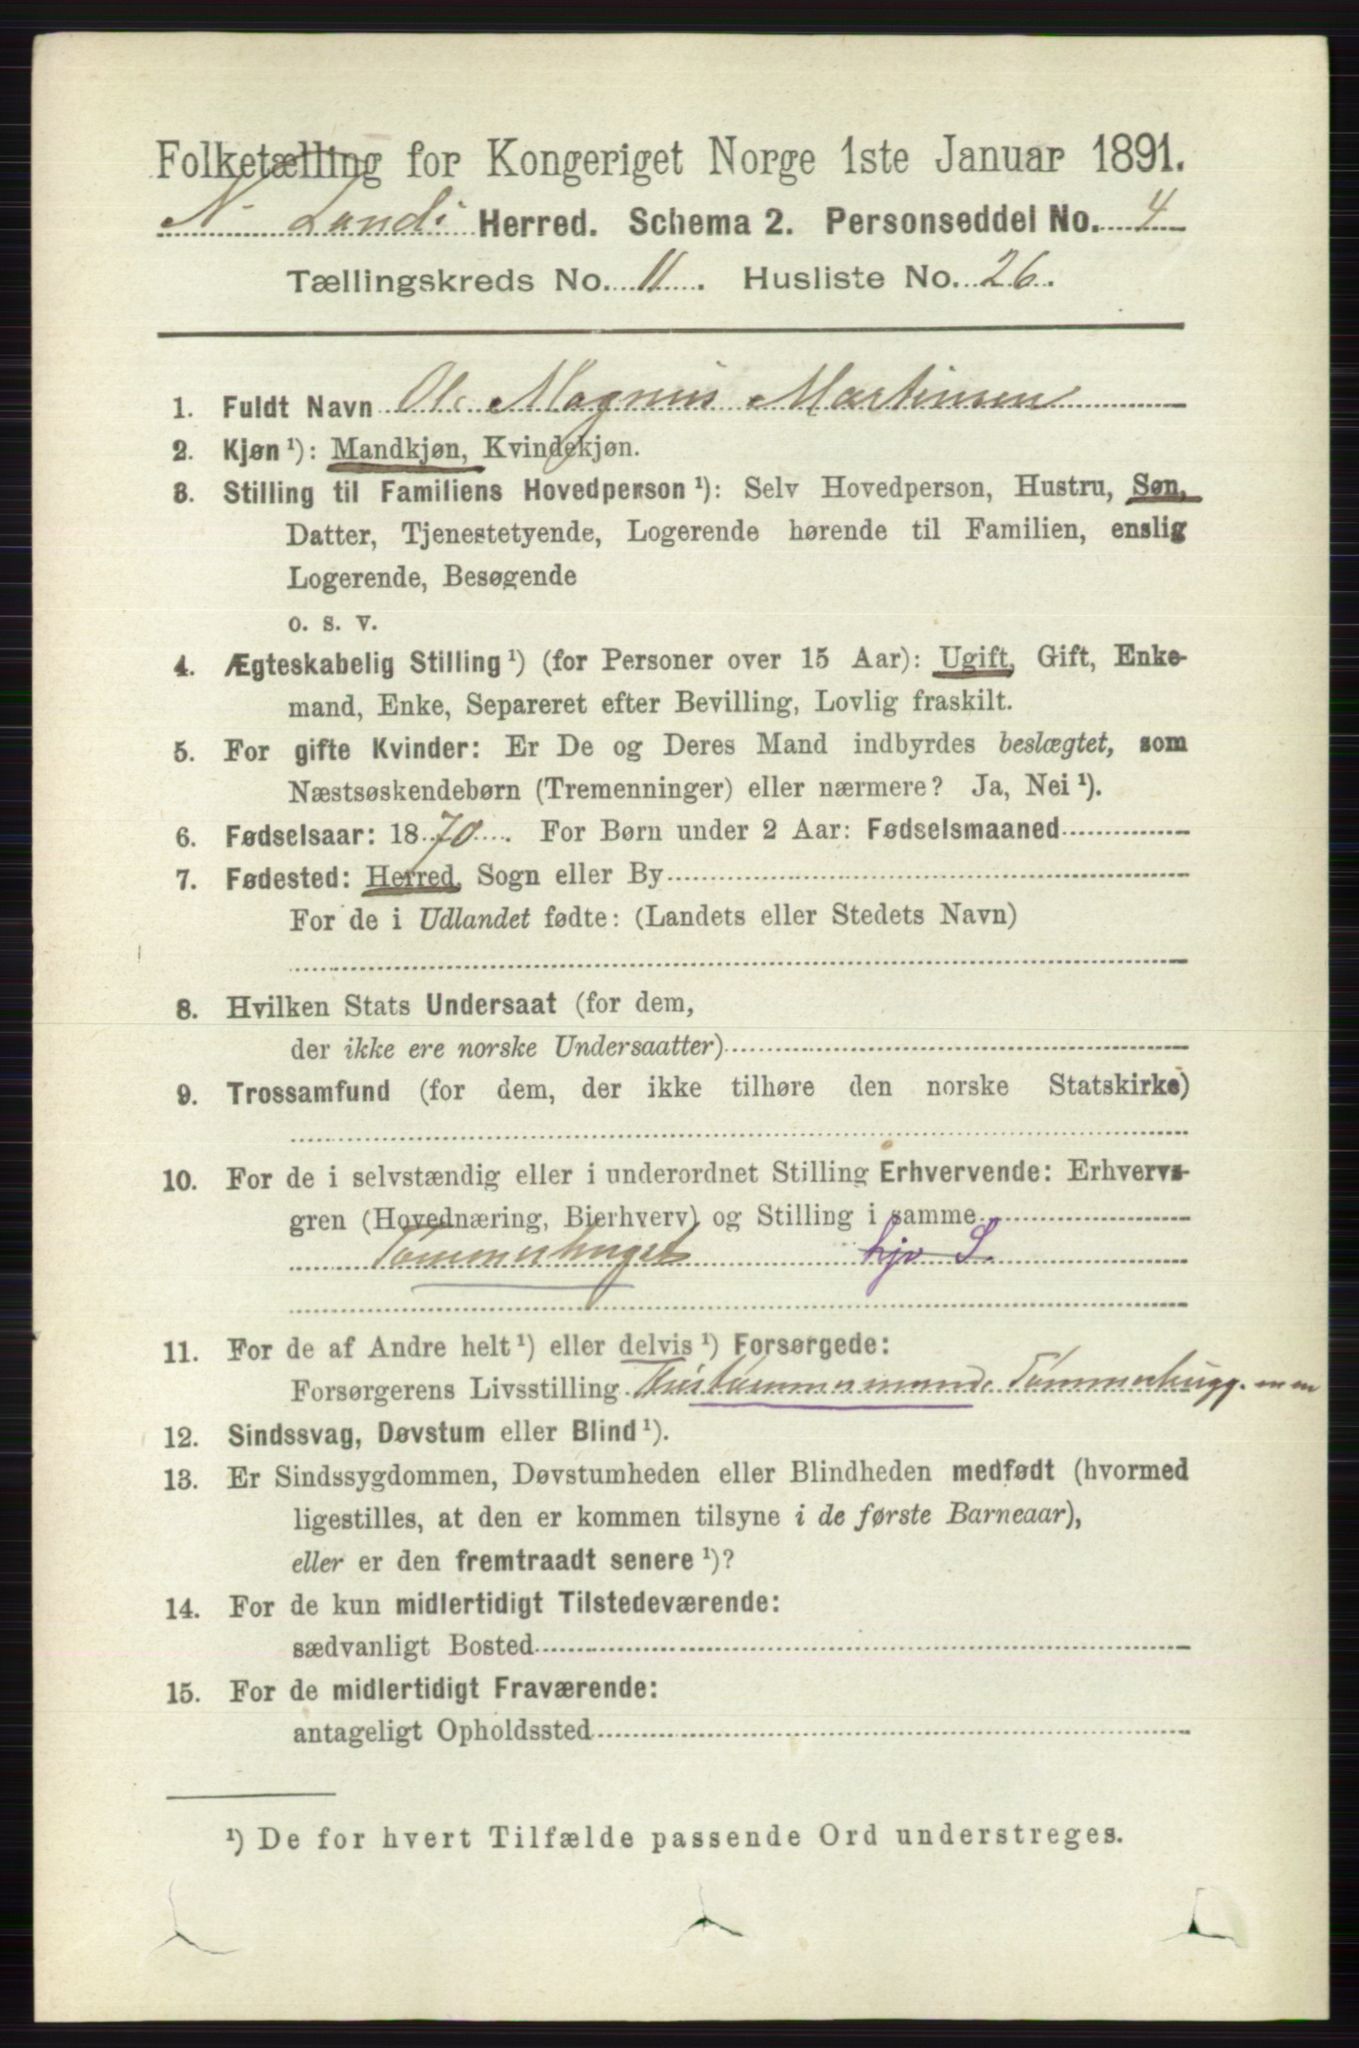 Folketælling for Kongeriget Norge 1ste Januar 1891.
N. Landi Herred. Schema 2. Personseddel No. 4
Tællingskreds No. 11. Husliste No. 26.
1. Fuldt Navn Ole Magnus Martinsen
2. Kjøn ¹): Mandkjøn, Kvindekjøn.
3. Stilling til Familiens Hovedperson ¹): Selv Hovedperson, Hustru, Søn,
Datter, Tjenestetyende, Logerende hørende til Familien, enslig
Logerende, Besøgende
o. s. v.
4. Ægteskabelig Stilling ¹) (for Personer over 15 Aar): Ugift, Gift, Enke-
mand, Enke, Separeret efter Bevilling, Lovlig fraskilt.
5. For gifte Kvinder: Er De og Deres Mand indbyrdes beslægtet, som
Næstsøskendebørn (Tremenninger) eller nærmere? Ja, Nei ¹).
6. Fødselsaar: 1870. For Børn under 2 Aar: Fødselsmaaned
7. Fødested: Herred, Sogn eller By
For de i Udlandet fødte: (Landets eller Stedets Navn)
8. Hvilken Stats Undersaat (for dem,
der ikke ere norske Undersaatter)
9. Trossamfund (for dem, der ikke tilhøre den norske Statskirke)
10. For de i selvstændig eller i underordnet Stilling Erhvervende: Erhvervs-
gren (Hovednæring, Bierhverv) og Stilling i samme
Tømmerhuget hjv S.
11. For de af Andre helt ¹) eller delvis ¹) Forsørgede:
Forsørgerens Livsstilling Tømmerhugg.
12. Sindssvag, Døvstum eller Blind ¹).
13. Er Sindssygdommen, Døvstumheden eller Blindheden medfødt (hvormed
ligestilles, at den er kommen tilsyne i de første Barneaar),
eller er den fremtraadt senere ¹)?
14. For de kun midlertidigt Tilstedeværende:
sædvanligt Bosted
15. For de midlertidigt Fraværende:
antageligt Opholdssted
¹) De for hvert Tilfælde passende Ord understreges.